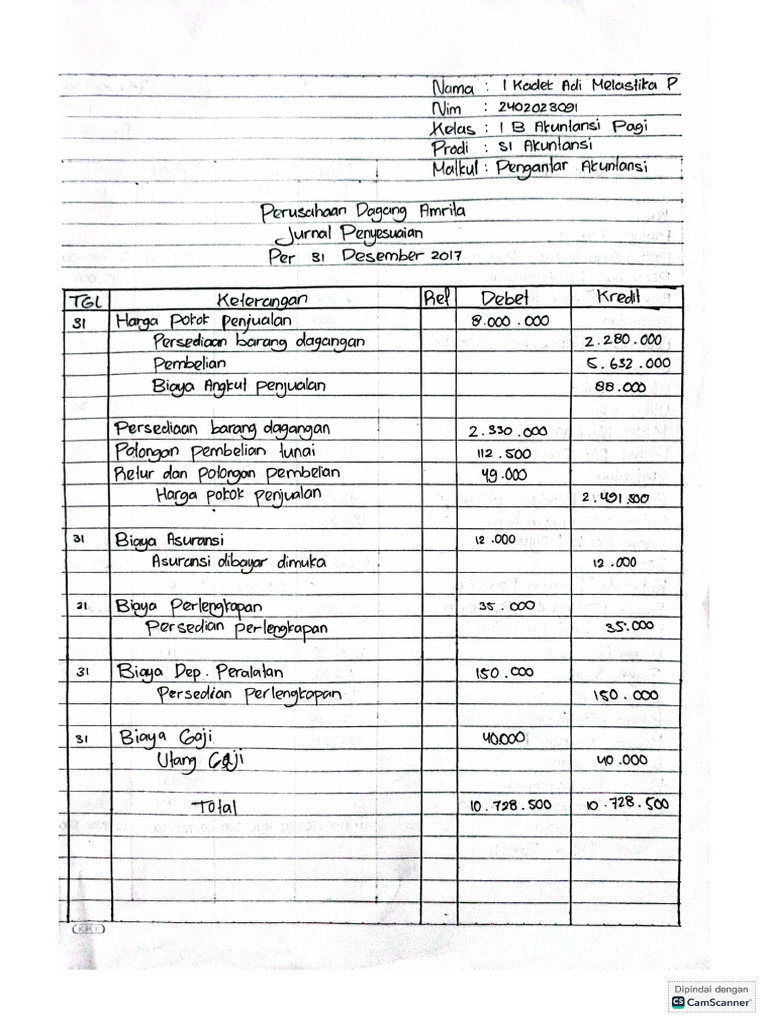 Nama : I Kadek Adi Melastika P
Nim : 2402023091
Kelas : 1 B Akuntansi Pagi
Prodi : S1 Akuntansi
Matkul : Pengantar Akuntansi
Perusahaan Dagang Amrita
Jurnal Penyesuaian
Per 31 Desember 2017
TGL Keterangan Ref Debet Kredit
31 Harga Pokok penjualan 8.000.000
Persediaan barang dagangan 2.280.000
Pembelian 5.632.000
Biaya Angkut penjualan 88.000
Persediaan barang dagangan 2.330.000
Potongan pembelian tunai 112.500
Retur dan potongan pembelian 49.000
Harga pokok penjualan 2.491.500
31 Biaya Asuransi 12.000
Asuransi dibayar dimuka 12.000
31 Biaya Perlengkapan 35.000
Persedian perlengkapan 35.000
31 Biaya Dep. Peralatan 150.000
Persedian Perlengkapan 150.000
31 Biaya Gaji 40.000
Utang Gaji 40.000
Total 10.728.500 10.728.500
KKY
Dipindai dengan
CS CamScanner